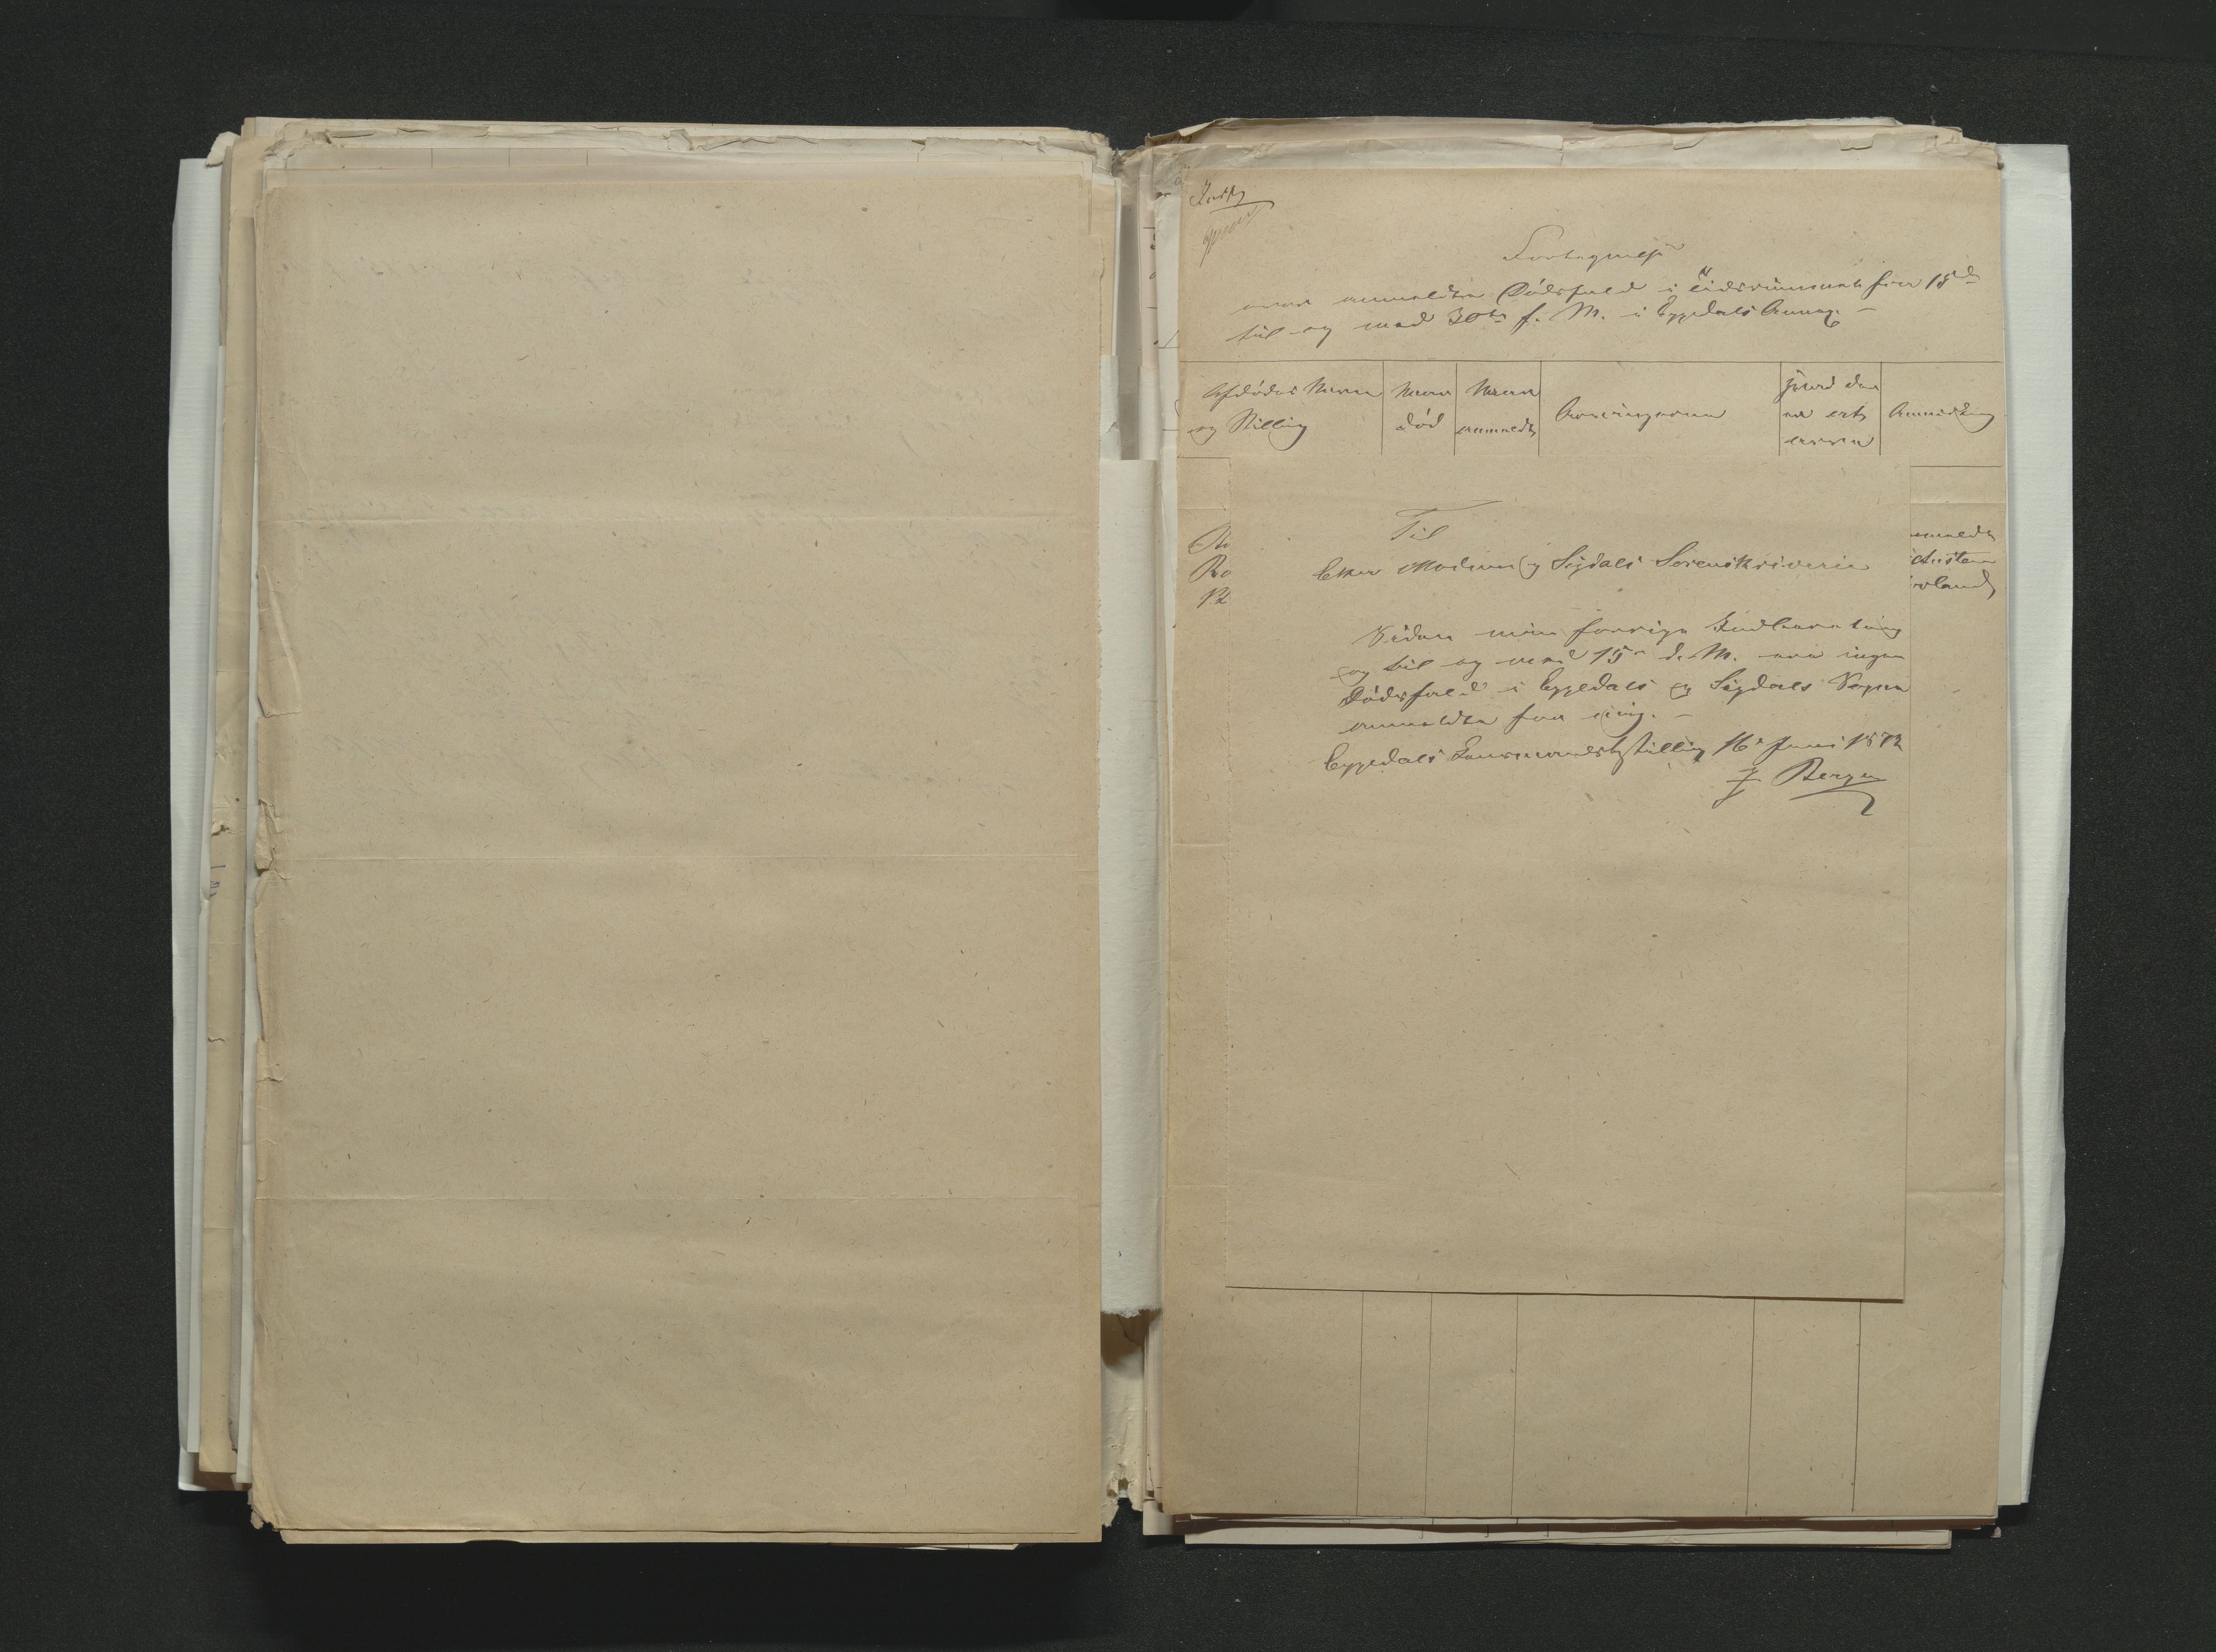 Fortegnelse
over anmeldte Dødsfald i Tidsrummet fra 15de
til og med 30te f. M. i Eggedals Annex
Afdødes Navn
og Stilling
Naar
død
Naar
anmeldt
Arvingerne
Hvad der
er
Anmærkning
anmeldt
Til
Eker Modum og Sigdals Sorenskriveri
Siden min forrige Indberetning
og til og med 15de d. M. ere ingen
Dødsfald i Eggedals og Sigdals Sogne
anmeldte for mig.
Eggedals Lensmandsbestilling 16de Juni 1872
J. Bergan